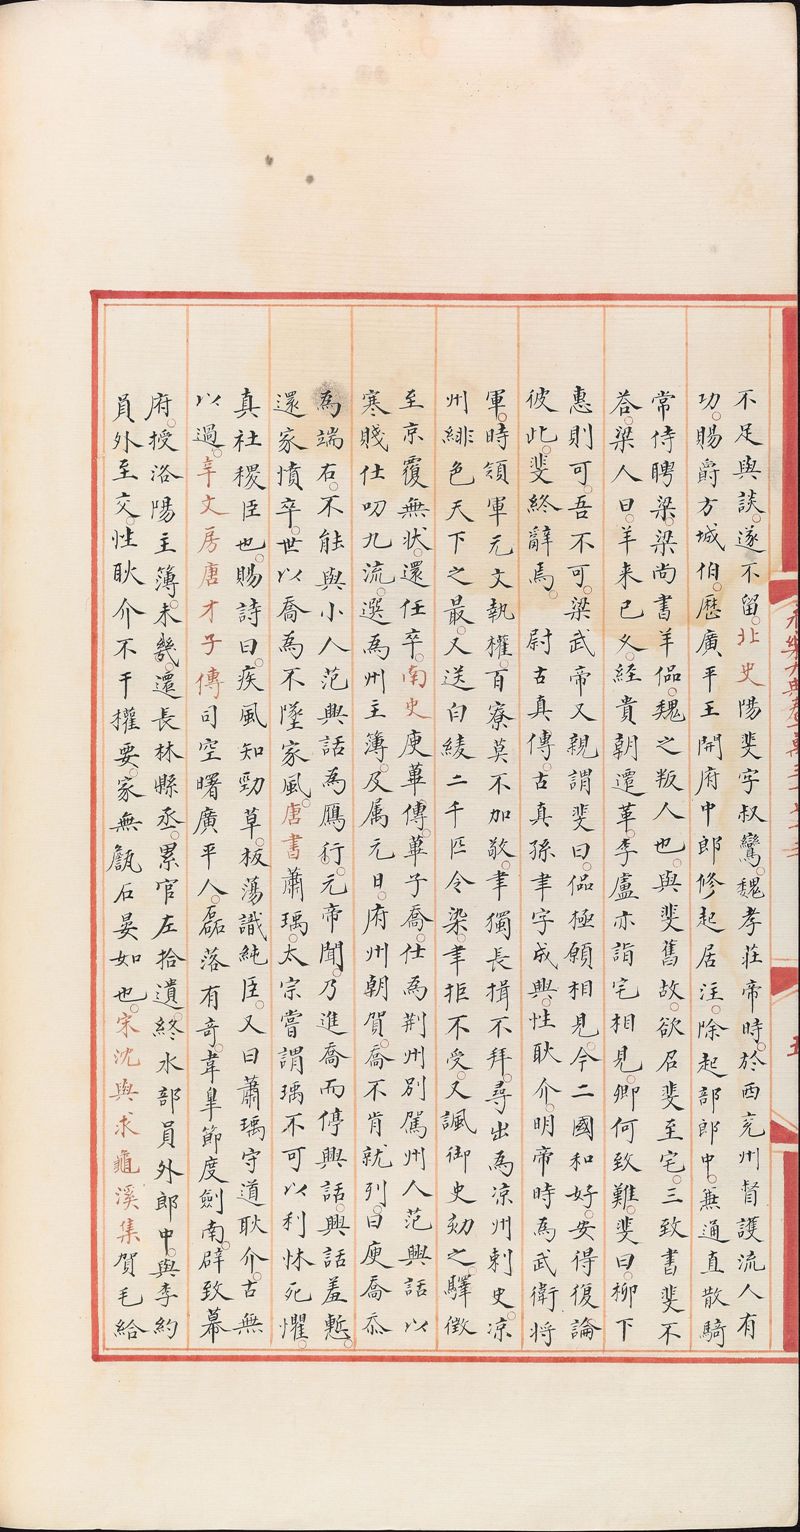 不足與談遂不留北史陽斐字叔鸞魏孝莊帝時於西兖州督護流人有
功賜爵方城伯歷廣平王開府中郎修起居注除起部郎中兼通直散騎
常侍聘梁梁尚書羊偘魏之叛人也與斐舊故欲召斐至宅三致書斐不
荅梁人曰羊来已久經貴朝遷革李盧亦詣宅相見卿何致難斐曰柳下
惠則可吾不可梁武帝又親謂斐曰偘極願相見今二國和好安得復論
彼此斐終辭焉 尉古真傳古真孫聿字成興性耿介明帝時為武衛将
軍時領軍元文執權百寮莫不加敬聿獨長揖不拜尋出為凉州刺史凉
州緋色天下之最又送白綾二千匹令染聿拒不受又諷御史劾之驛徵
至京覆無状還任卒南史庾蓽傳蓽子喬仕為荆州别駕州人范興話以
寒賤仕叨九流選為州主簿及属元日府州朝賀喬不肯就列曰庾喬忝
為端右不能與小人范興話為鴈行元帝聞乃進喬而停興話興話羞慙
還家憤卒世以喬為不墜家風唐書蕭瑀太宗嘗謂瑀不可以利怵死懼
真社稷臣也賜詩曰疾風知勁草板蕩識純臣又曰蕭瑀守道耿介古無
以過辛文房唐才子傳司空曙廣平人磊落有奇韋臯節度劍南辟致幕
府授洛陽主簿未幾還長林縣丞累官左拾遺終水部員外郎中與李約
員外至交性耿介不干權要家無甔石晏如也宋沈與求龜溪集賀毛給